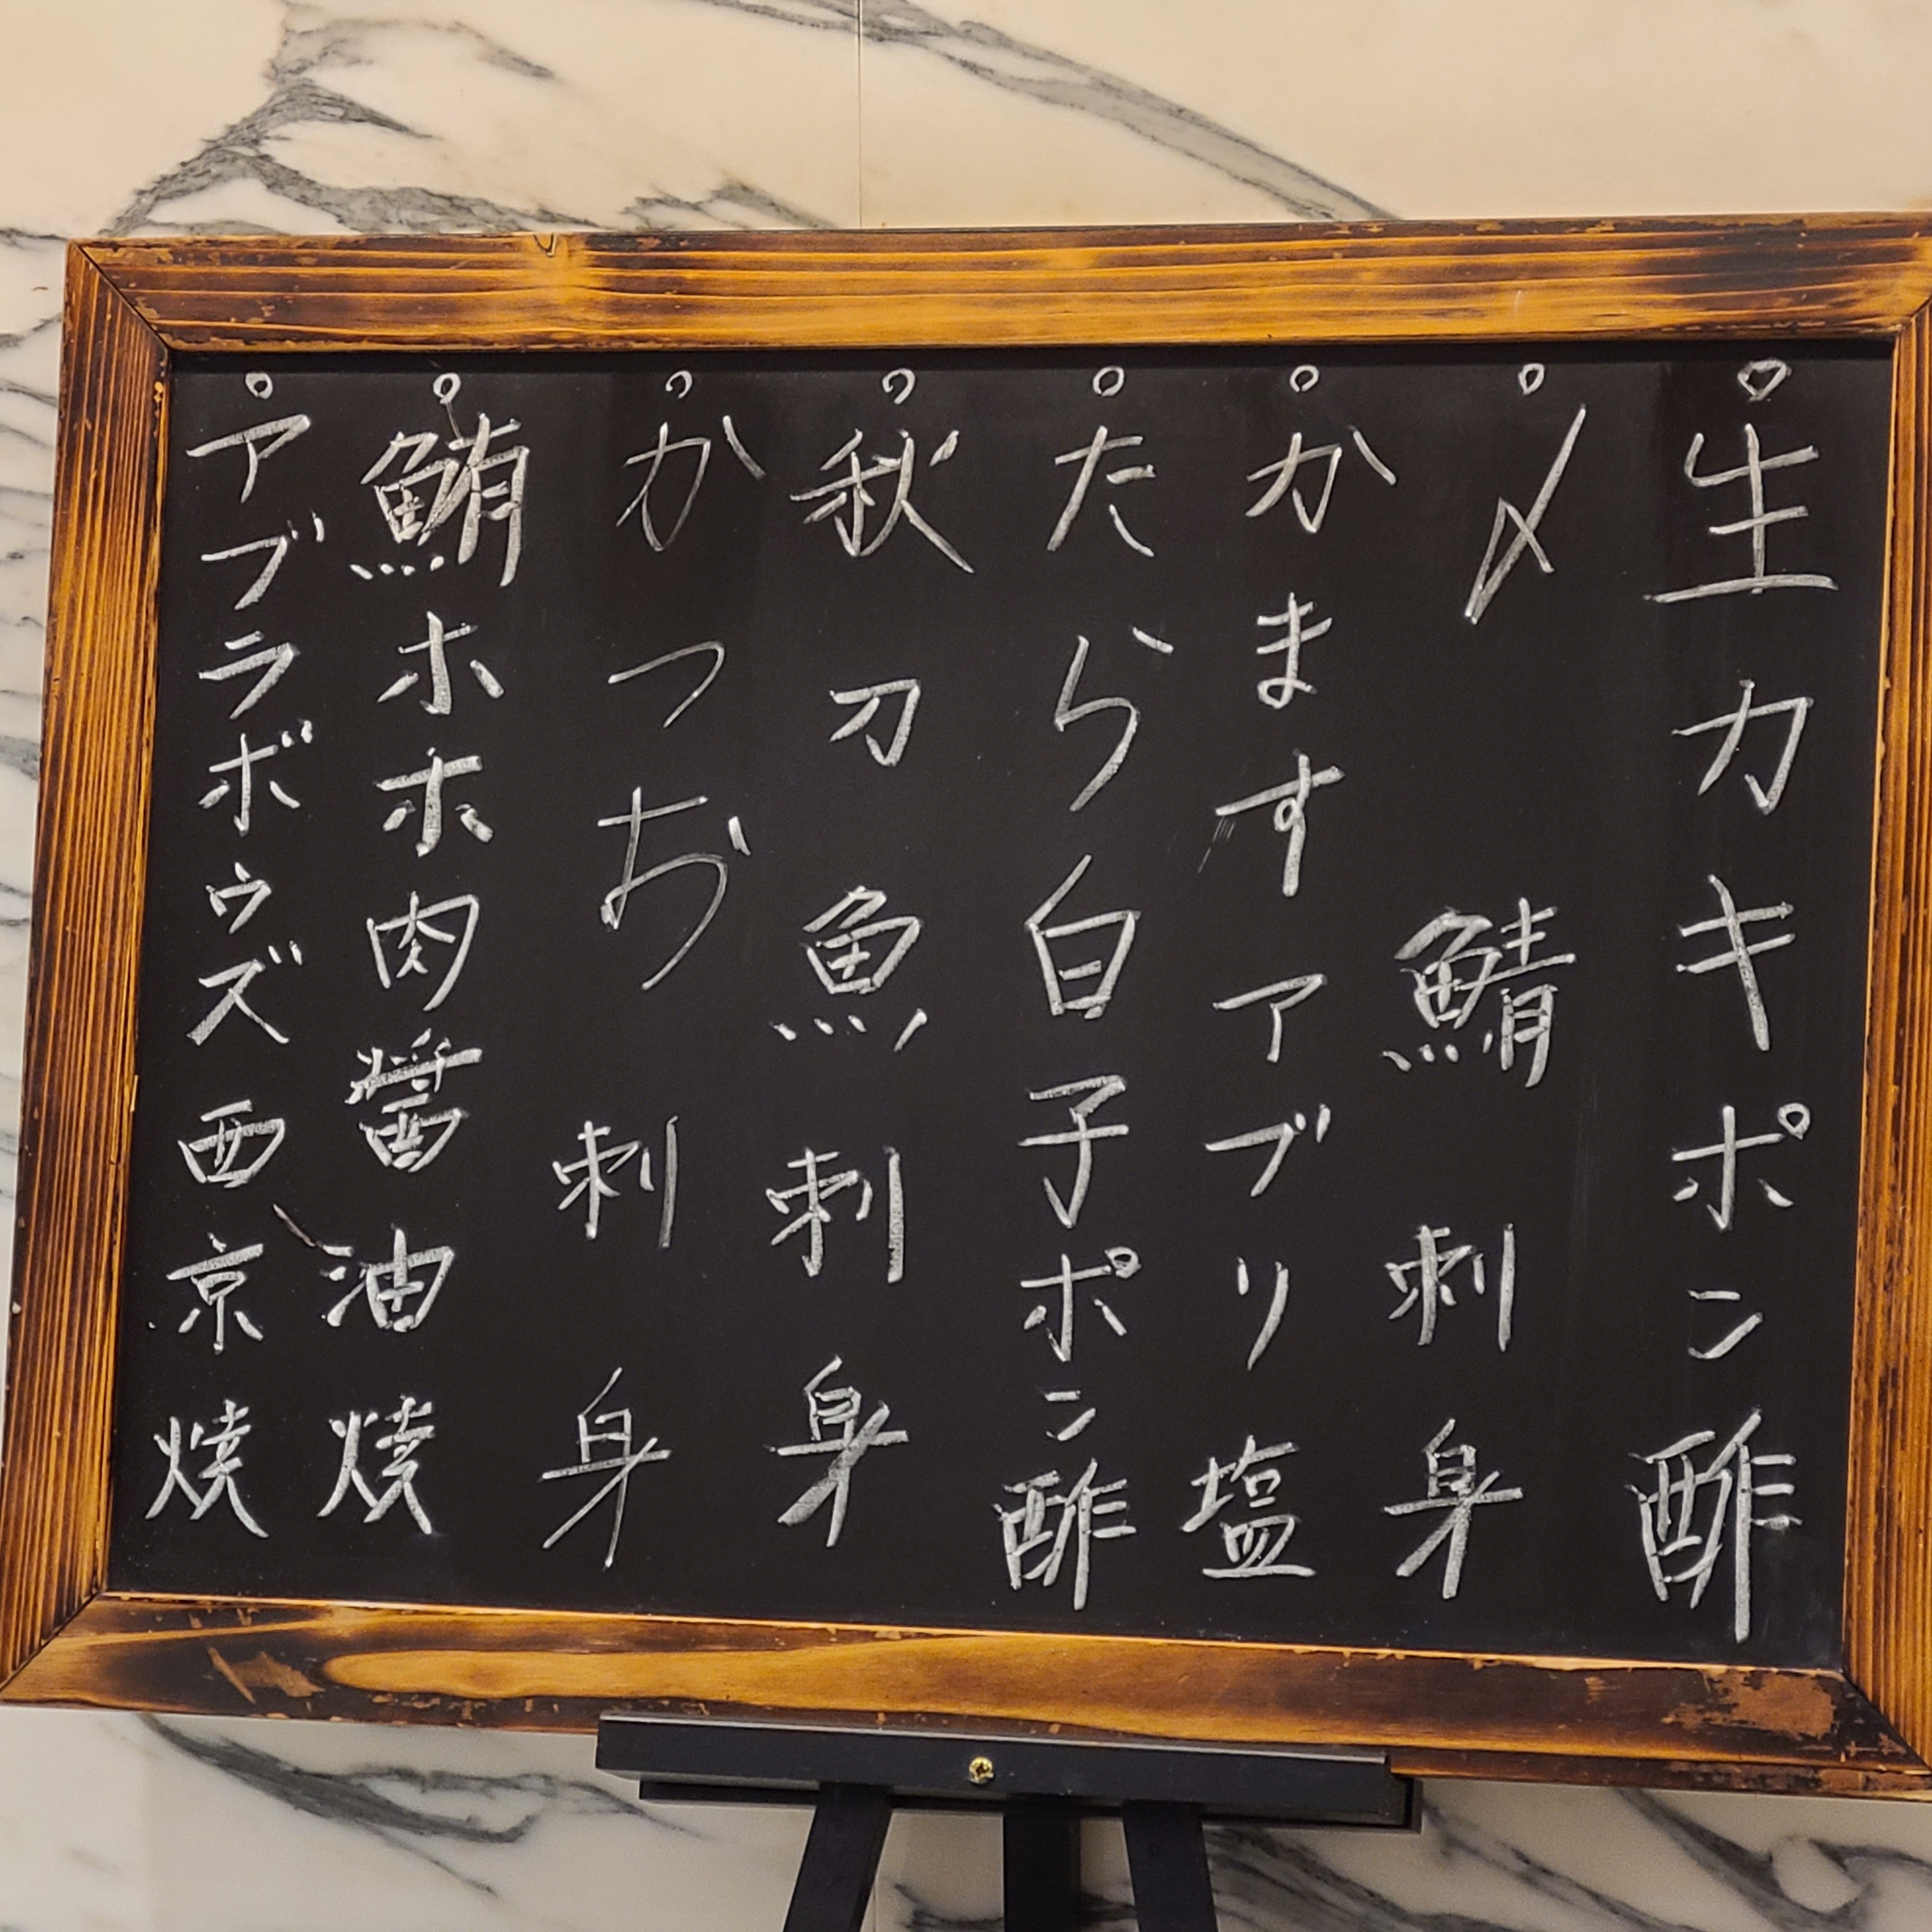 ○生カキポン酢
○〆鯖刺身
○かますアブリ塩
○たら白子ポン酢
○秋刀魚刺身
○かつお刺身
○鮪ホホ肉醤油焼
○アブラボウズ西京焼